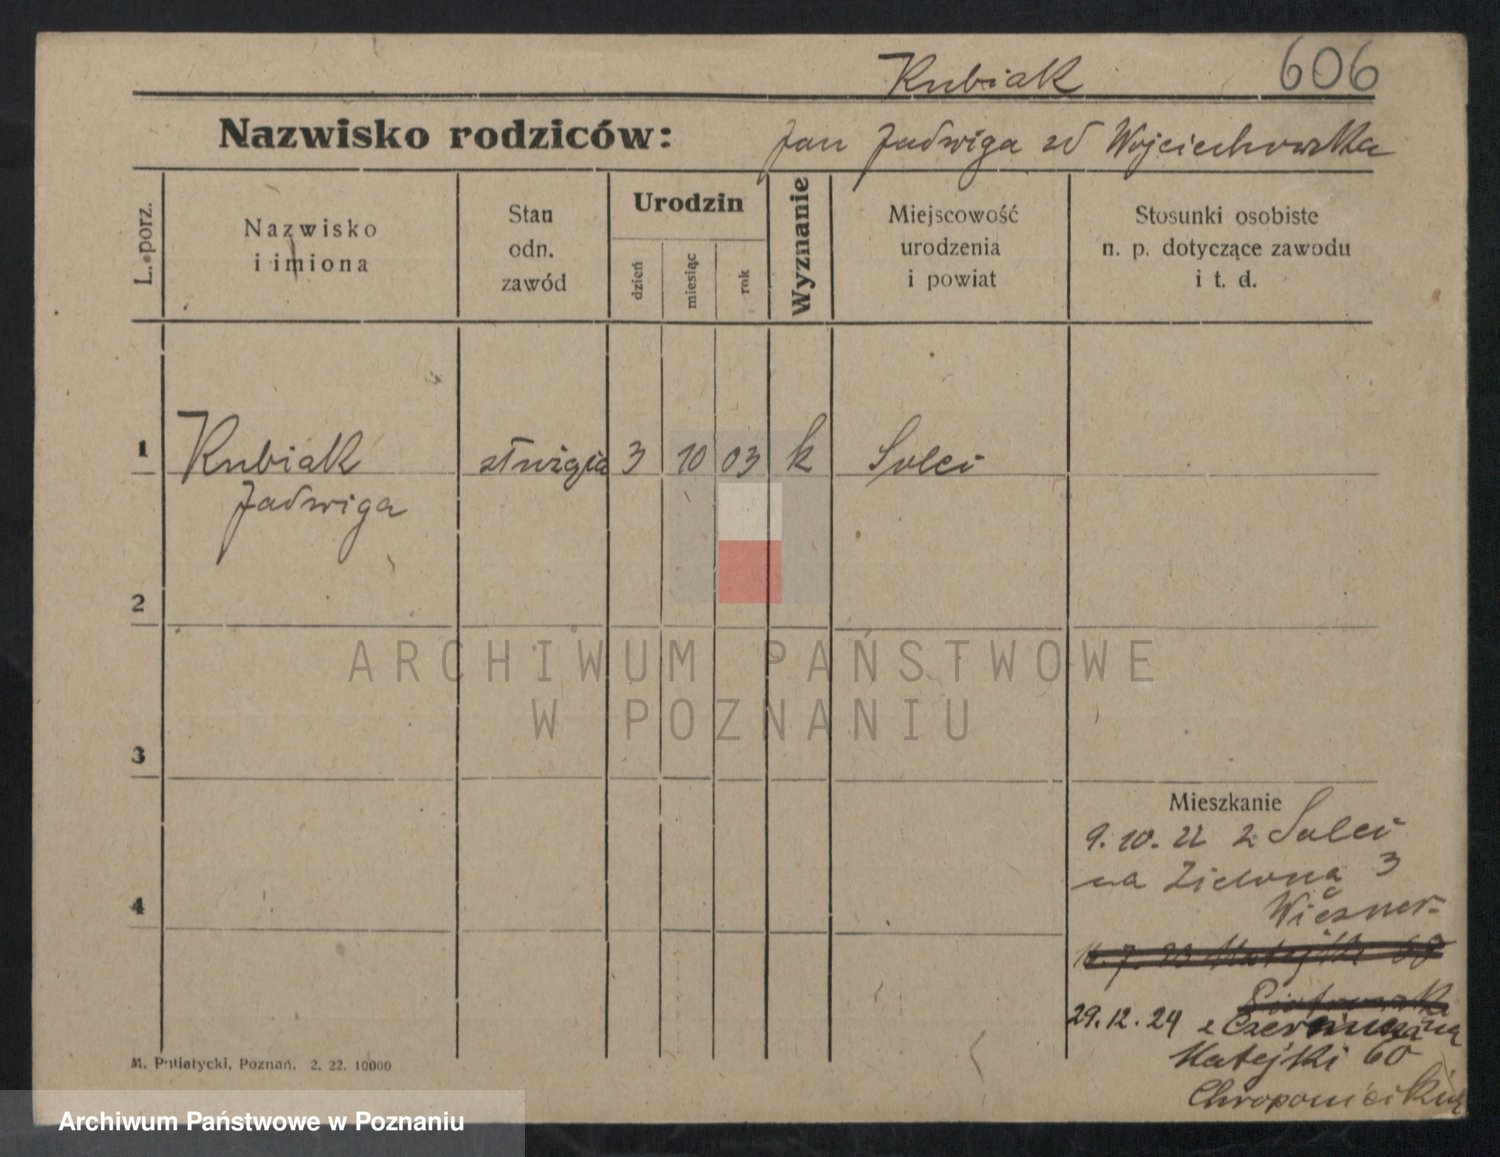 Kubiak 606
Nazwisko rodziców: Jan Jadwiga zd Wojciechowska
L. porz.
Nazwisko
i imiona
Stan
odn.
zawód
Urodzin
dzień
miesiąc
rok
Wyznanie
Miejscowość
urodzenia
i powiat
Stosunki osobiste
n. p. dotyczące zawodu
i t. d.
1 Kubiak służąca 3 10 03 k Solec
Jadwiga
2
3
4
ARCHIWUM PAŃSTWOWE
W POZNANIU
Mieszkanie
9.10.22 z Solec
na Zielona 3
7. 23 Matejki
29.12.24 z
Matejki 60
M. Putiatycki, Poznań. 2. 22. 10000
Archiwum Państwowe w Poznaniu